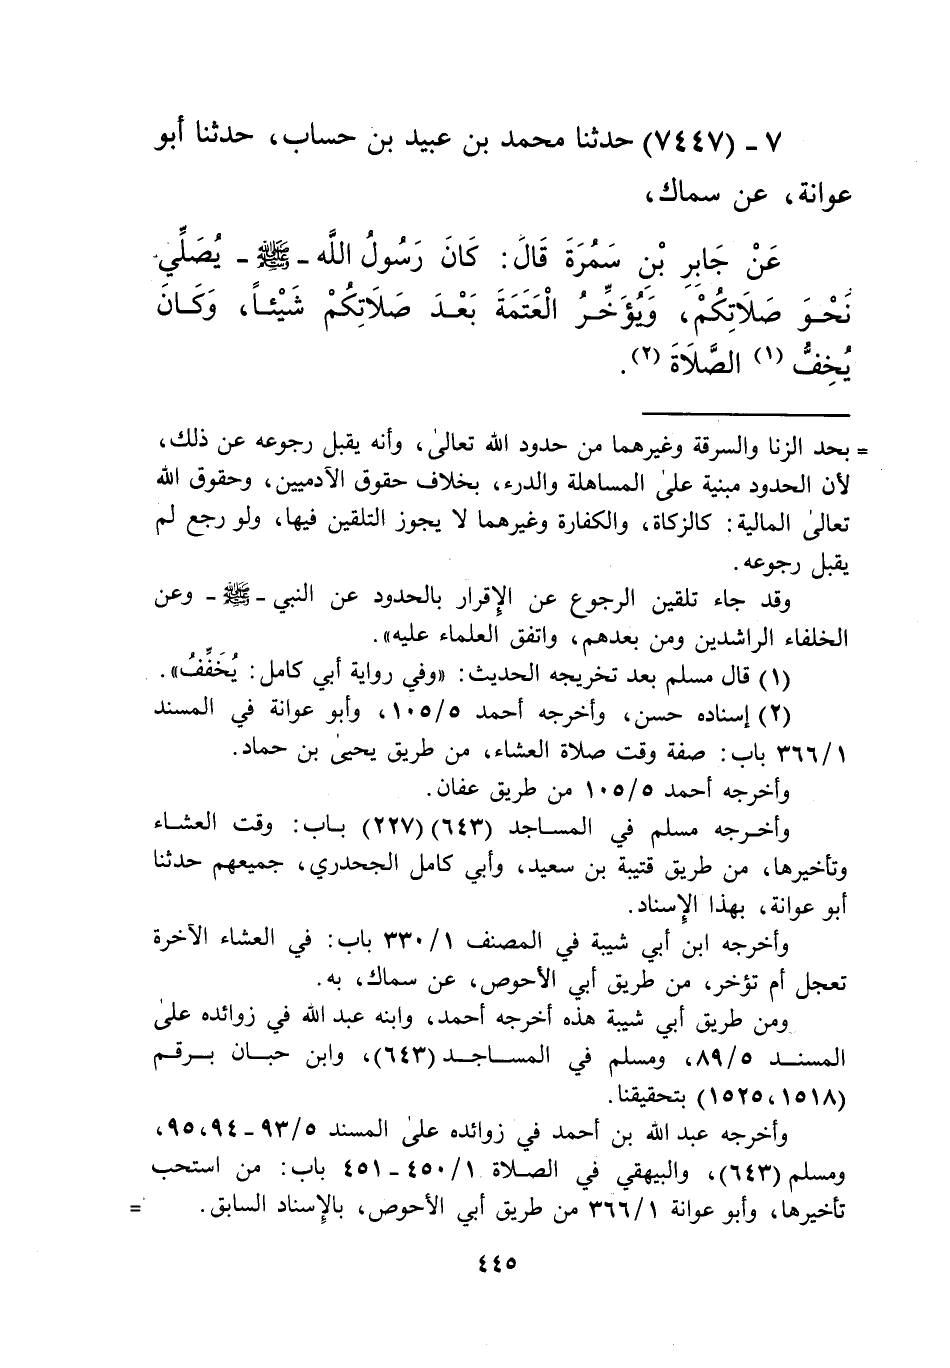 ٧ - (٧٤٤٧) حدثنا محمد بن عبيد بن حساب، حدثنا أبو
عوانة، عن سماك،
عَنْ جَابِرِ بْنِ سَمُرَةَ قَالَ: كَانَ رَسُولُ اللَّه - ﷺ - يُصَلِّي
نَحْوَ صَلَاتِكُمْ، وَيُؤَخِّرُ الْعَتَمَةَ بَعْدَ صَلَاتِكُمْ شَيْئاً، وَكَانَ
يُخِفُّ (١) الصَّلَاةَ (٢).
= بحد الزنا والسرقة وغيرهما من حدود الله تعالىٰ، وأنه يقبل رجوعه عن ذلك،
لأن الحدود مبنية علىٰ المساهلة والدرء، بخلاف حقوق الآدميين، وحقوق الله
تعالىٰ المالية: كالزكاة، والكفارة وغيرهما لا يجوز التلقين فيها، ولو رجع لم
يقبل رجوعه.
وقد جاء تلقين الرجوع عن الإقرار بالحدود عن النبي - ﷺ - وعن
الخلفاء الراشدين ومن بعدهم، واتفق العلماء عليه».
(١) قال مسلم بعد تخريجه الحديث: «وفي رواية أبي كامل: يُخَفِّفُ».
(٢) إسناده حسن، وأخرجه أحمد ١٠٥/٥، وأبو عوانة في المسند
٣٦٦/١ باب: صفة وقت صلاة العشاء، من طريق يحيىٰ بن حماد.
وأخرجه أحمد ١٠٥/٥ من طريق عفان.
وأخرجه مسلم في المساجد (٦٤٣) (٢٢٧) باب: وقت العشاء
وتأخيرها، من طريق قتيبة بن سعيد، وأبي كامل الجحدري، جميعهم حدثنا
أبو عوانة، بهذا الإسناد.
وأخرجه ابن أبي شيبة في المصنف ٣٣٠/١ باب: في العشاء الآخرة
تعجل أم تؤخر، من طريق أبي الأحوص، عن سماك، به.
ومن طريق أبي شيبة هذه أخرجه أحمد، وابنه عبد الله في زوائده علىٰ
المسند ٨٩/٥، ومسلم في المساجد (٦٤٣)، وابن حبان برقم
(١٥١٨، ١٥٢٥) بتحقيقنا.
وأخرجه عبد الله بن أحمد في زوائده علىٰ المسند ٩٣/٥ - ٩٤، ٩٥،
ومسلم (٦٤٣)، والبيهقي في الصلاة ٤٥٠/١ - ٤٥١ باب: من استحب
تأخيرها، وأبو عوانة ٣٦٦/١ من طريق أبي الأحوص، بالإسناد السابق. =
٤٤٥